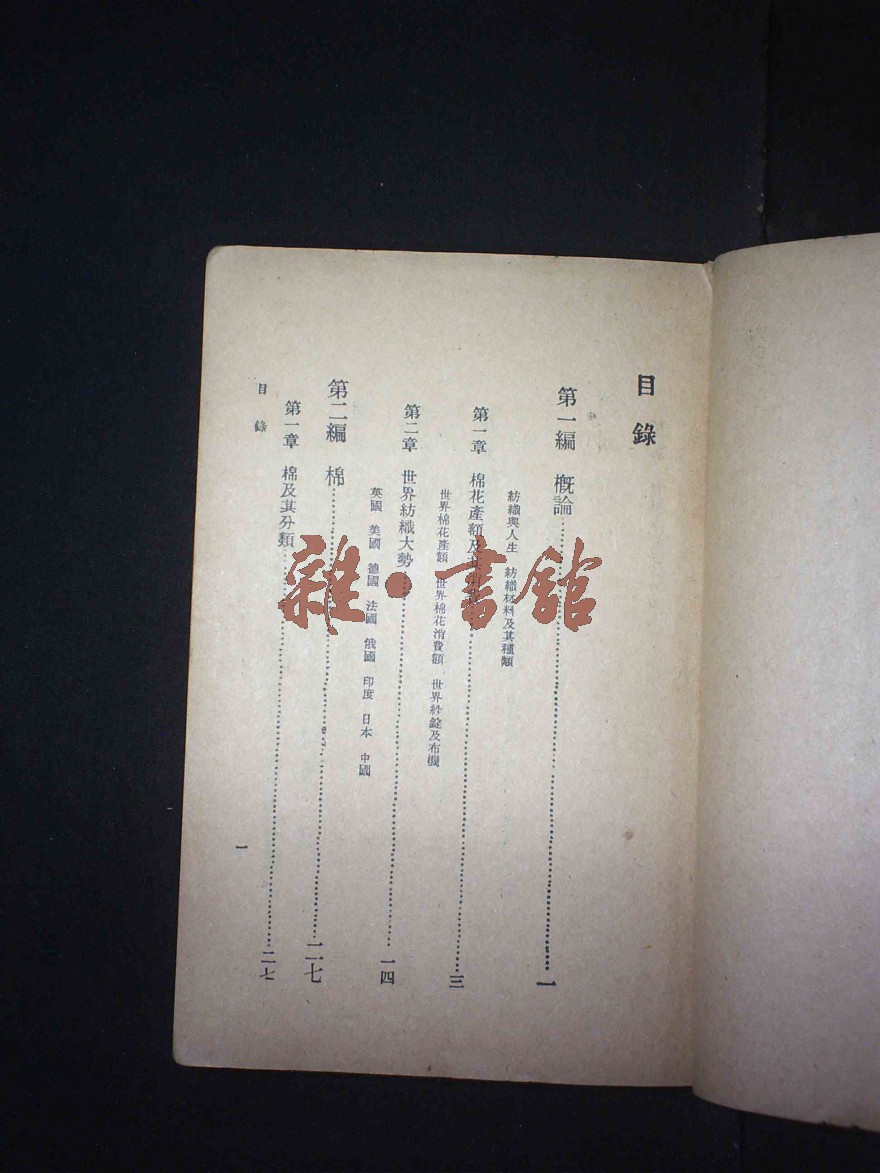 目錄
第一編 概論……一
紡織與人生 紡織材料及其種類
第一章 棉花產額及……三
世界棉花產額 世界棉花消費額 世界紗錠及布機
第二章 世界紡織大勢……一四
英國 美國 德國 法國 俄國 印度 日本 中國
第二編 棉……二七
第一章 棉及其分類……二七
目錄
一
雜·書館